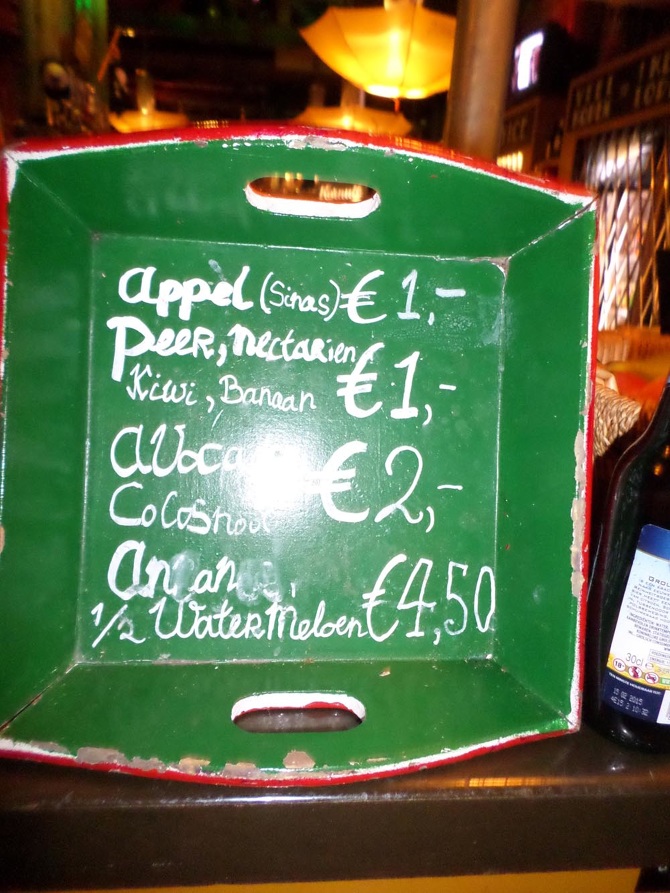 appel (Sinas) € 1,-
Peer, nectarien
Kiwi, Banaan € 1,-
€ 2,-
Cocosnoot
1/2 WaterMeloen € 4,50
30cl